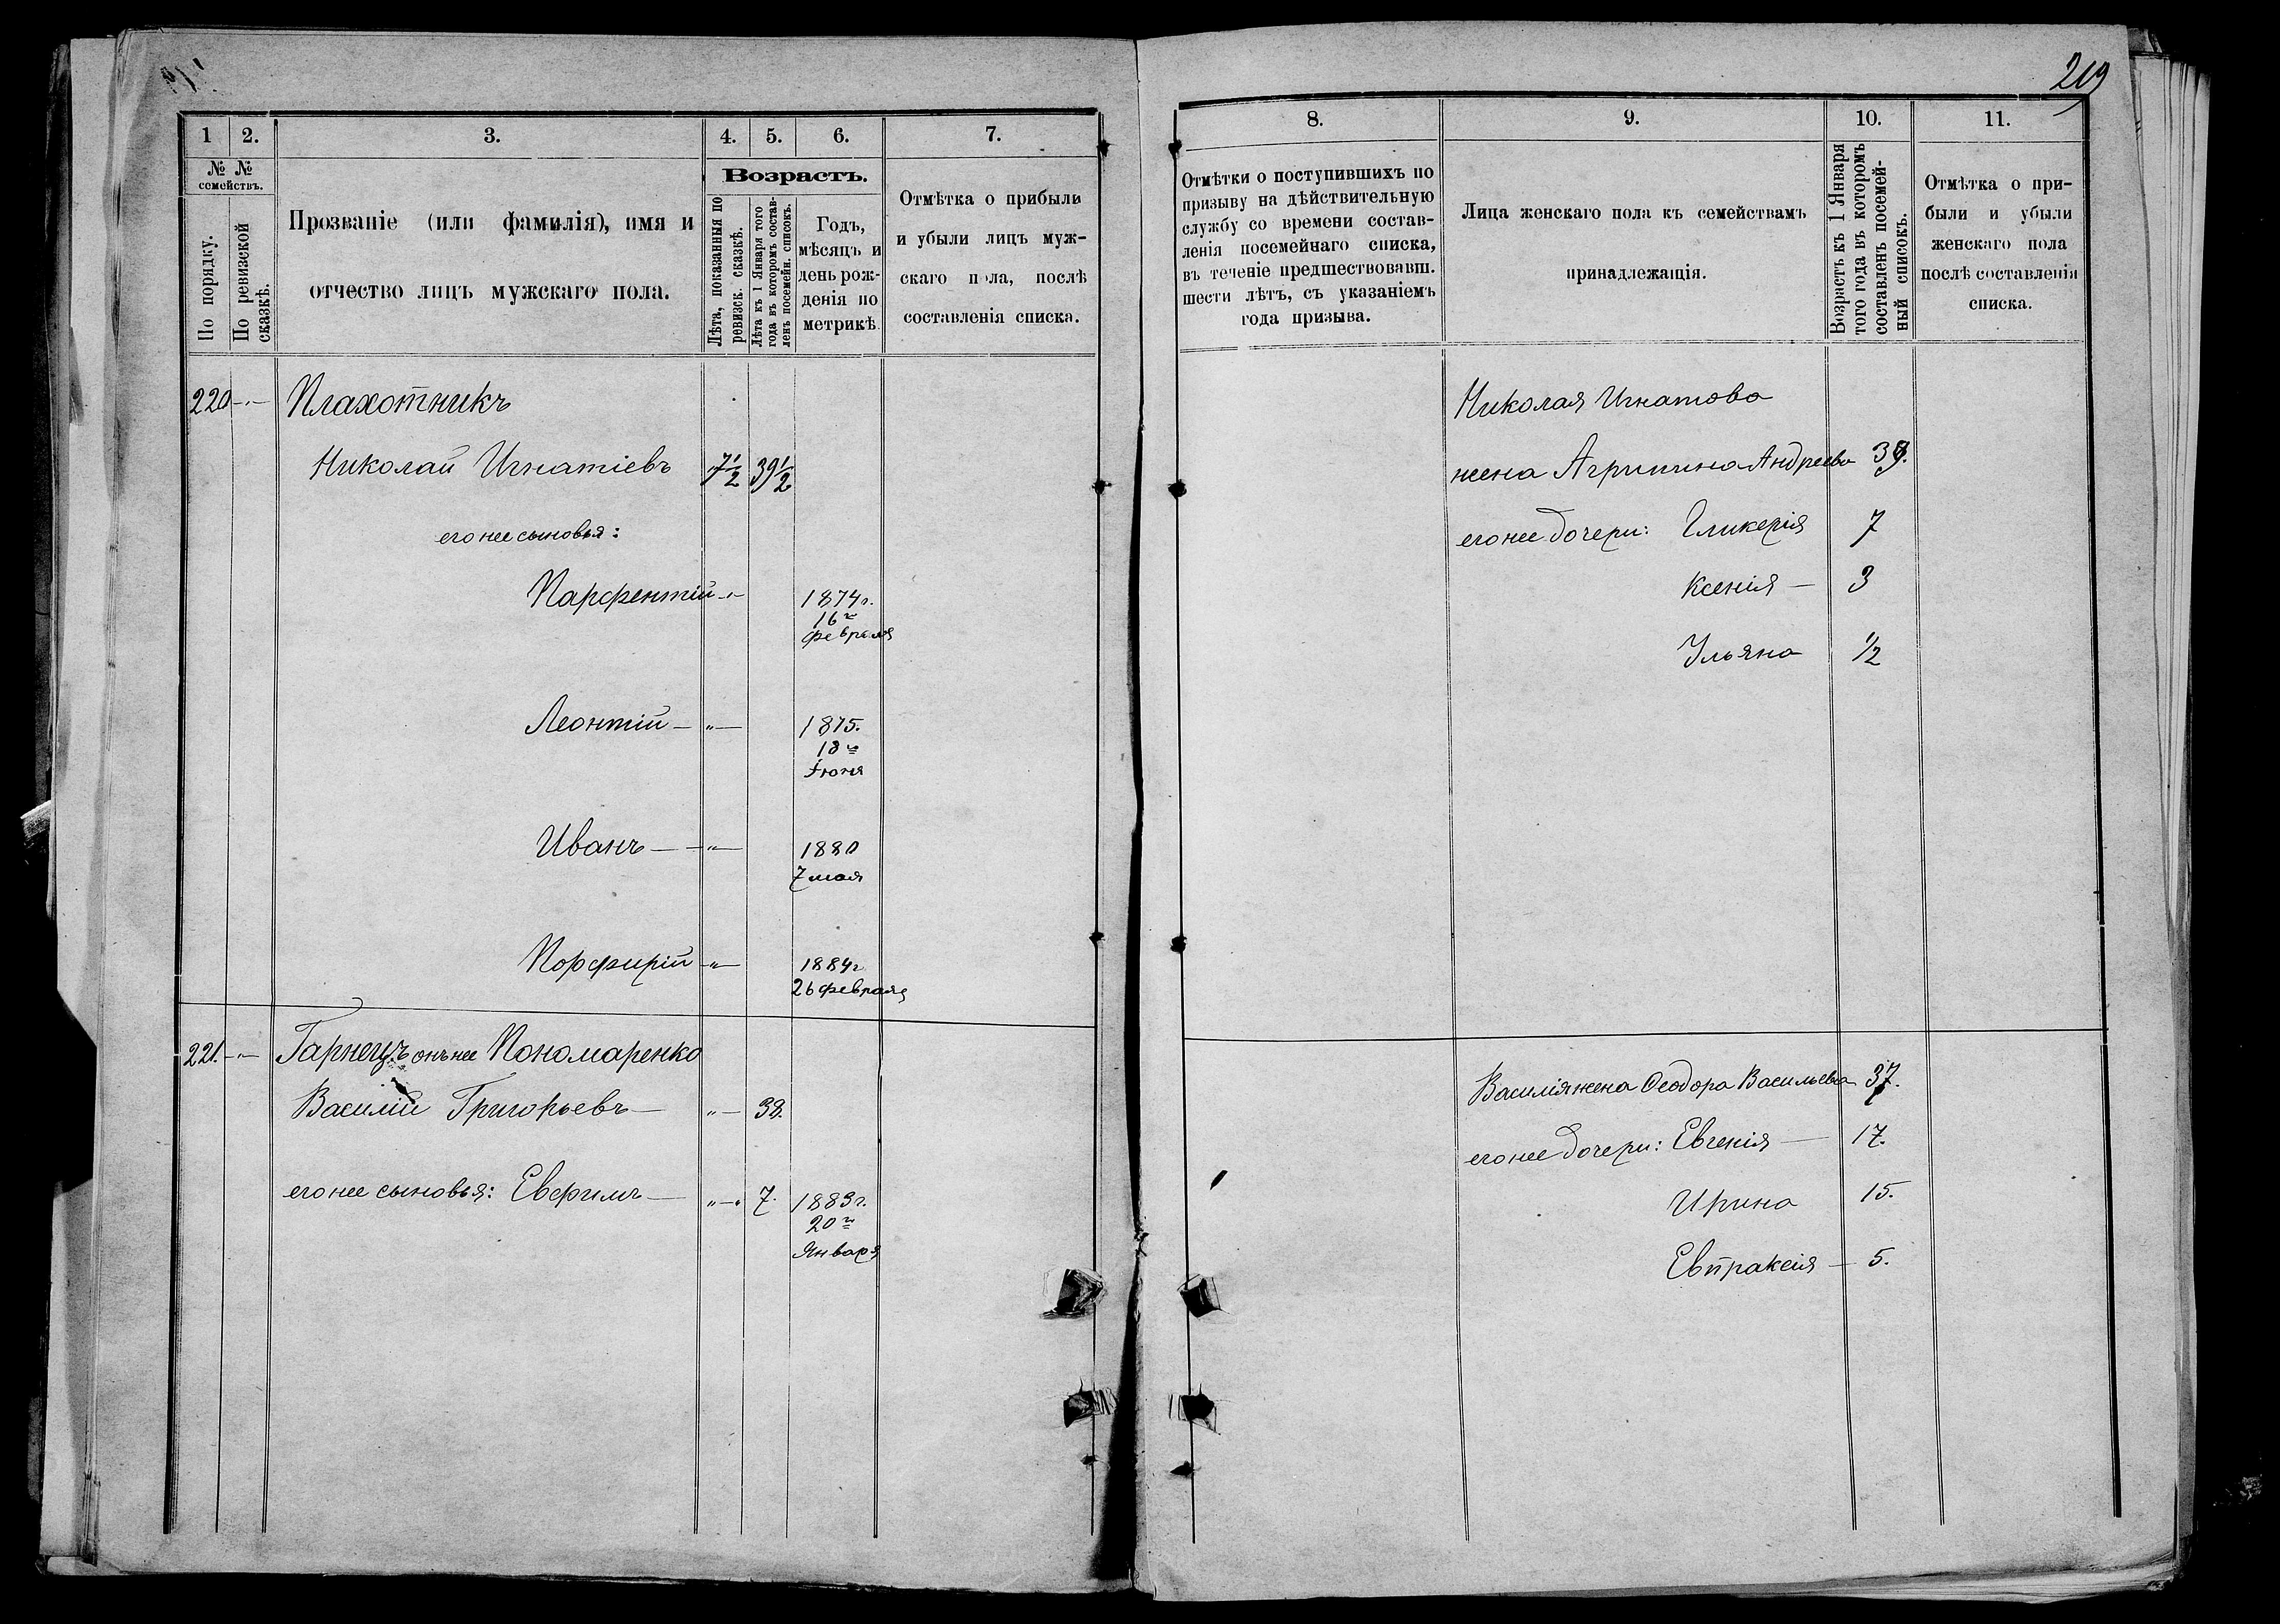 219
1
2.
3.
4.
5.
6.
7.
№ №
семействъ.
По порядку.
По ревизской
сказкѣ.
Прозваніе (или фамилія), имя и
отчество лицъ мужскаго пола.
Возрастъ.
Лѣта, показанныя по
ревизск. сказкѣ.
Лѣта къ 1 Января того
года въ которомъ состав-
ленъ посемейн. списокъ.
Годъ,
мѣсяцъ и
день рож-
денія по
метрикѣ
Отмѣтка о прибыли
и убыли лицъ муж-
скаго пола, послѣ
составленія списка.
220 -"- Плахотникъ
Николай Игнатіевъ 7½ 39½
его же сыновья:
Парфентій -"- 1874 г.
16го
февраля
Леонтій - "- 1875.
18го
Іюня
Иванъ - -"- 1880
7 мая
Порфирій -"- 1884 г
26 февраля
221. -"- Гарнецъ онъ же Пономаренко
Василій Григорьевъ - "- 38.
его же сыновья: Евфимъ - "- 7. 1883 г.
20го
Января
8.
9.
10.
11.
Отмѣтки о поступившихъ по
призыву на дѣйствительную
службу со времени состав-
ленія посемейнаго списка,
въ теченіе предшествовавш.
шести лѣтъ, съ указаніемъ
года призыва.
Лица женскаго пола къ семействамъ
принадлежащія.
Возрастъ къ 1 Января
того года въ которомъ
составленъ посемей-
ный списокъ.
Отмѣтка о при-
были и убыли
женскаго пола
послѣ составленія
списка.
Николая Игнатова
жена Агрипина Андреева
его же дочери: Гликерія 7
Ксенія - 3
Ульяна ½
Василія жена Феодора Васильева 37.
его же дочери: Евгенія - 17.
Ирина 15.
Евпраксія - 5.